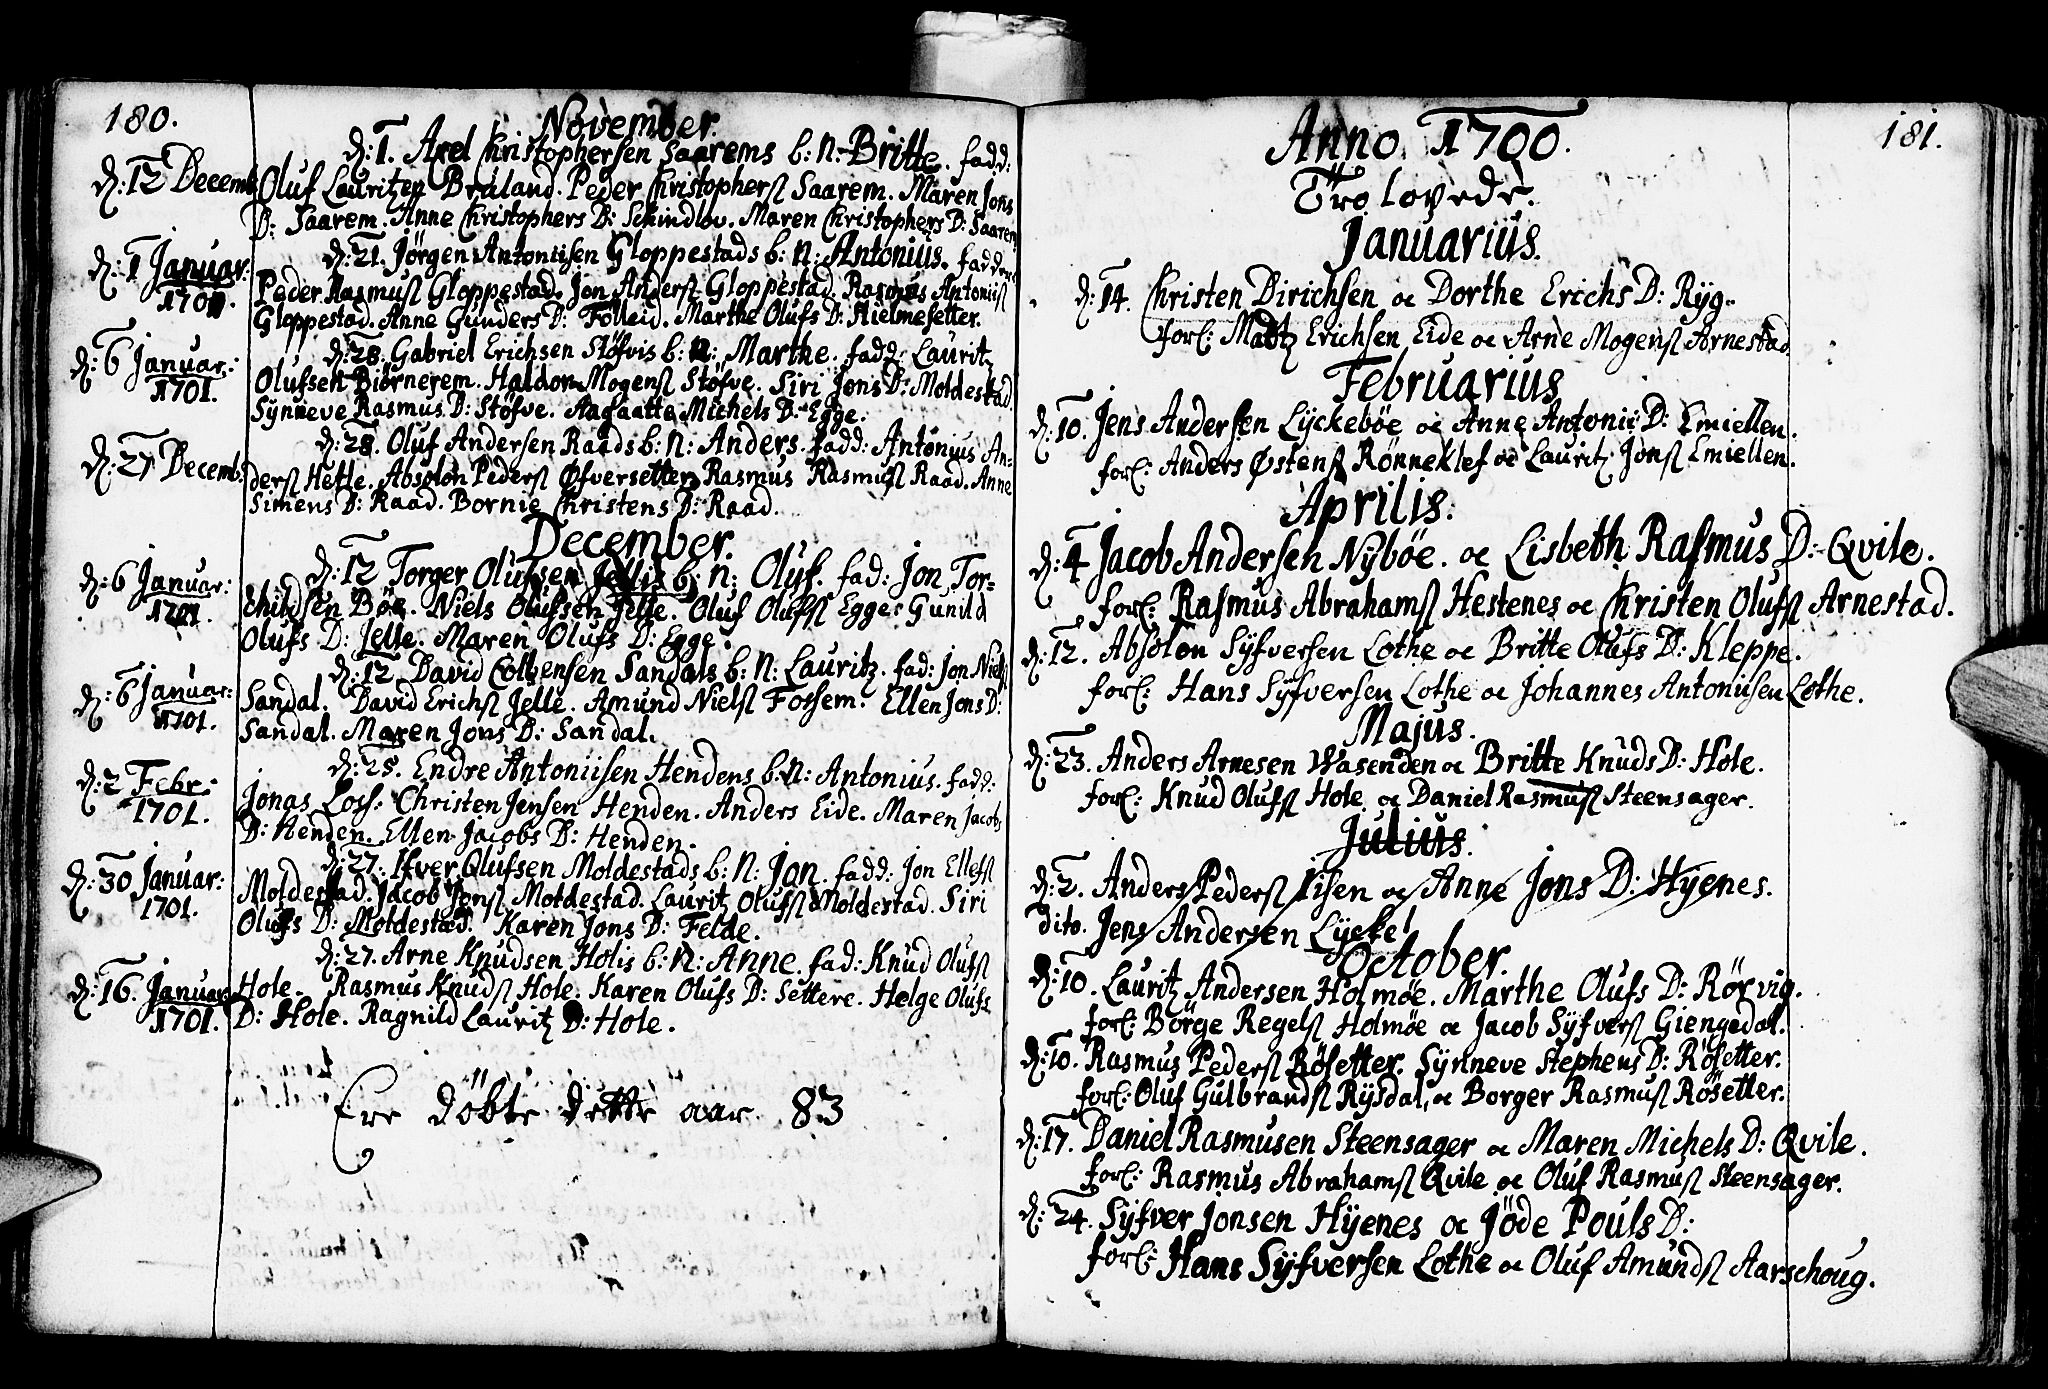 180.
November.
d: 1. Axel Christophersen Saarems b: n: Britte. fadd:
d: 12 Decemb:
Oluf Lauritzen Braland. Peder Christophersſ Saarem. Maren Jons
D: Saarem. Anne Christophers D: Schindlov. Maren Christophers D: Saarem
d: 21. Jørgen Antoniisen Gloppestads b: n: Antonius. fadder
d: 1 Januar:
1701.
Peder Rasmusſ Gloppestad. Jon Andersſ Gloppestad. Rasmus Antoniisſ
Gloppestad. Anne Gunders D: Folleid. Marthe Olufs D: Hielmesetter.
d: 28. Gabriel Erichsen Støfvis b: n: Marthe. fadd: Lauritz
d: 6 Januar:
1701.
Olufsen Biørnerem. Haldor Mogensſ Støfve. Siri Jons D: Moldestad.
Synneve Rasmus D: Støfve. Aagaatte Michels D: Egge.
d: 28. Oluf Andersen Raads b: n: Anders. fadd: Antonius An-
d: 27 Decemb:
dersſ Hetle. Absolon Pedersſ Øfversetter. Rasmus Rasmusſ Raad. Anne
Simens D: Raad. Bornie Christens D: Raad.
December.
d: 12 Torger Olufsen Jellis b: n: Oluf. fad: Jon Tor-
d: 6 Januar:
1701.
childsen Bøe. Niels Olufsen Jelle. Oluf Olufsſ Egge. Gunild
Olufs D: Jelle. Maren Olufs D: Egge.
d: 12 David Colbensen Sandals b: n: Lauritz. fad: Jon Nielsſ
d: 6 Januar:
1701.
Sandal. David Erichsſ Jelle. Amund Nielsſ Fothem. Ellen Jons D:
Sandal. Maren Jons D: Sandal.
d: 25. Endre Antoniisen Hendens b: n: Antonius. fadd:
d: 2 Febr:
1701.
Jonas Loss. Christen Jensen Henden. Anders Eide. Maren Jacobs
D: Henden. Ellen Jacobs D: Henden.
d: 27. Ifver Olufsen Moldestads b: n: Jon. fadd: Jon Ellefsſ
d: 30 Januar:
1701.
Moldestad. Jacob Jonsſ Moldestad. Lauritz Olufsſ Moldestad. Siri
Olufs D: Moldestad. Karen Jons D: Felde.
d: 27. Arne Knudsen Holis b: n: Anne. fad: Knud Olufsſ
d: 16. Januar
1701.
Hole. Rasmus Knudsſ Hole. Karen Olufs D: Settere. Helge Olufs
D: Hole. Ragnild Lauritz D: Hole.
Ere døbte dette aar 83
181.
Anno 1700.
Trolovede.
Januarius.
d: 14. Christen Dirichsen oc Dorthe Erichs D: Ryg.
forl: Madtz Erichsen Eide oc Arne Mogensſ Arnestad.
Februarius
d: 10. Jens Andersen Lyckebøe oc Anne Antonii D: Emiellen.
forl: Anders Østensſ Rønneklef oc Lauritz Jonsſ Emiellen.
Aprilis.
d: 4 Jacob Andersen Nybøe. oc Lisbeth Rasmus D: Qvile.
forl: Rasmus Abrahamsſ Hestenes oc Christen Olufsſ Arnestad.
d: 12. Absolon Syfversen Lothe oc Britte Olufs D: Kleppe.
forl: Hans Syfversen Lothe oc Johannes Antoniisen Lothe.
Majus.
d: 23. Anders Arnesen Wasenden oc Britte Knuds D: Hole.
forl: Knud Olufsſ Hole oc Daniel Rasmusſ Steensager.
Julius.
d: 2. Anders Pedersſ Iisen oc Anne Jons D: Hyenes.
dito. Jens Andersen Lycke
October.
d: 10. Lauritz Andersen Holmøe. Marthe Olufs D: Rørvig.
forl: Børge Regelsſ Holmøe oc Jacob Syfversſ Giengedal.
d: 10. Rasmus Pedersſ Røsetter. Synneve Stephens D: Røsetter.
forl: Oluf Gulbrandsſ Rysdal, oc Borger Rasmusſ Røsetter.
d: 17. Daniel Rasmusen Steensager oc Maren Michels D: Qvile.
forl: Rasmus Abrahamsſ Qvile oc Oluf Rasmusſ Steensager.
d: 24. Syfver Jonsen Hyenes oc Jøde Pouls D:
forl: Hans Syfversen Lothe oc Oluf Amundsſ Aarschoug.